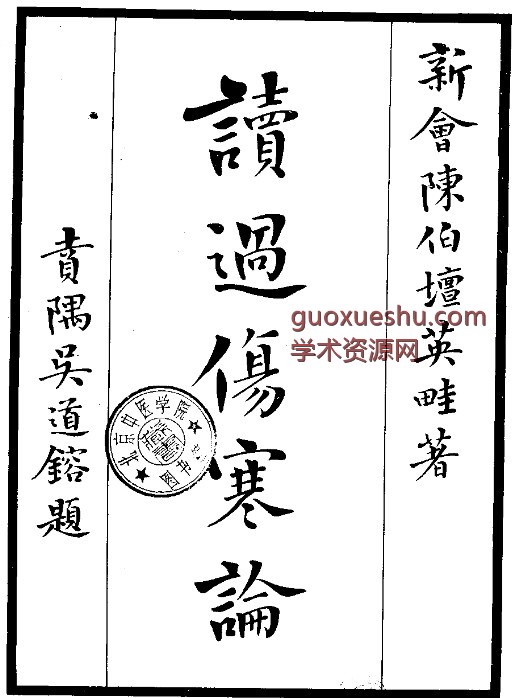 新會陳伯壇英畦著
讀過傷寒論
賁隅吳道鎔題
guoxueshu.com
学术资源网
北京中医学院